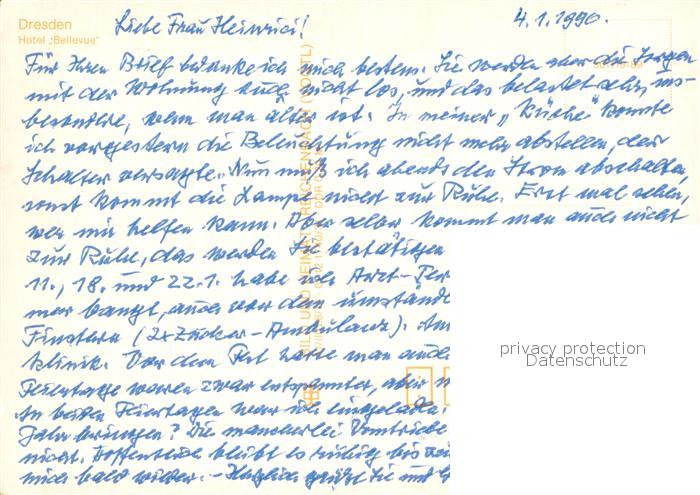 Dresden
Hotel „Bellevue"
4.1.1990.
Liebe Frau Heinrici!
Für Ihren Brief bedanke ich mich bestens. Sie werden aber die Sorgen
mit der Wohnung auch nicht los, und das belastet sehr, ins-
besondere, wenn man älter ist. In meiner „Küche" konnte
ich vorgestern die Beleuchtung nicht mehr abstellen, der
Schalter versagte. Nun muß ich abends den Strom abschalten,
sonst kommt die Lampe nicht zur Ruhe. Erst mal sehen,
wer mir helfen kann. Aber selber kommt man auch nicht
zur Ruhe, das werden Sie bestätigen
11., 18. und 22.1. habe ich Arzt-Ter
mer bangt, auch vor dem umständ
Finstern (2x Zucker-Ambulanz).
klinik. Vor dem Fest hatte man auch
Feiertage waren zwar entspannter, aber
An beiden Feiertagen war ich eingeladen.
Jahr bringen? Die mancherlei Umtriebe
nicht. Hoffentlich bleibt es ruhig bis
mich bald wieder. - Herzlich grüßt Sie und
privacy protection
Datenschutz